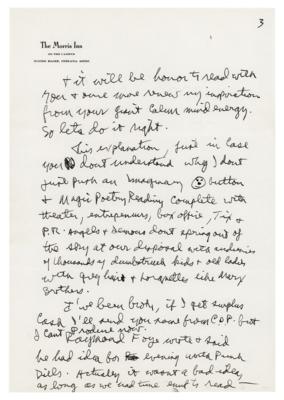 3
The Morris Inn
ON THE CAMPUS
NOTRE DAME, INDIANA 46556
& it will be honor to read with
you & once more renew my inspiration
from your giant calm mind energy.
So lets do it right.
This explanation, just in case
you dont understand why I dont
just push an imaginary button
& Magic Poetry Reading complete with
theater, entrepeneurs, box office, Tix &
P.R. angels & demons dont spring out of
the sky at our disposal with audiences
of thousands of dumbstruck kids & old ladies
with grey hair & lorgnettes like Marx
Brothers.
I've been broke, if I get surplus
cash I'll send you some from C.O.P. but
I cant produce now.
Raymond Foye wrote & said
he had idea for evening with Punk
Dills. Actually it wasnt a bad idea,
as long as we had time enuf to read —